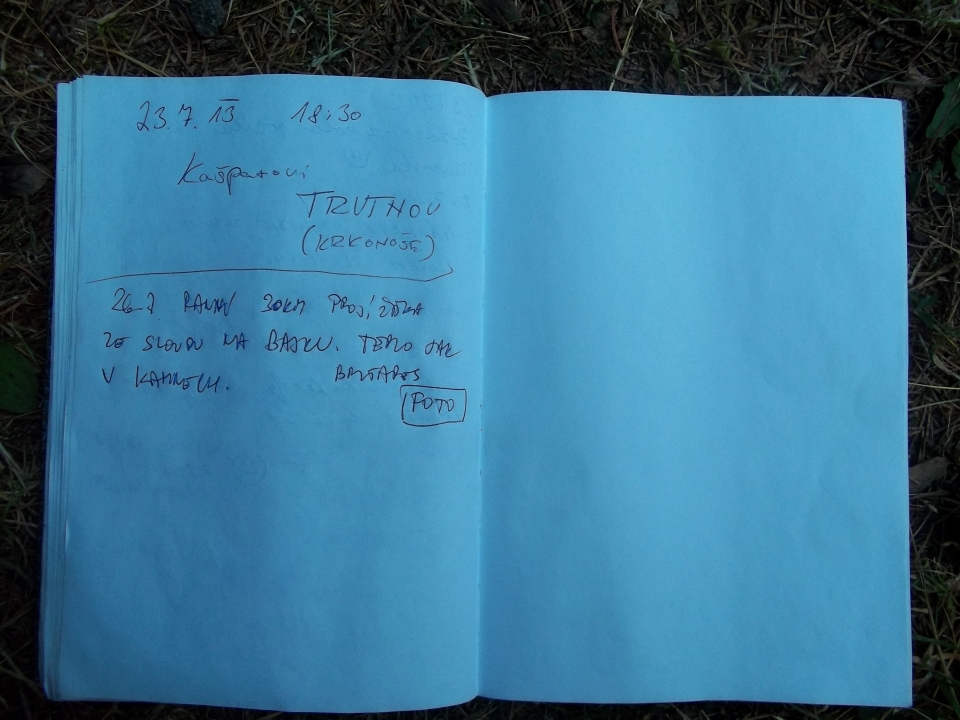 23.7.13 18:30
Kašparovi
TRUTNOV
(KRKONOŠE)
26.7 RANNÍ 30KM PROJÍŽĎKA
ZE SLOUPU NA BAJKU. TEPLO JAK
V KAMNECH. BALTARES
FOTO